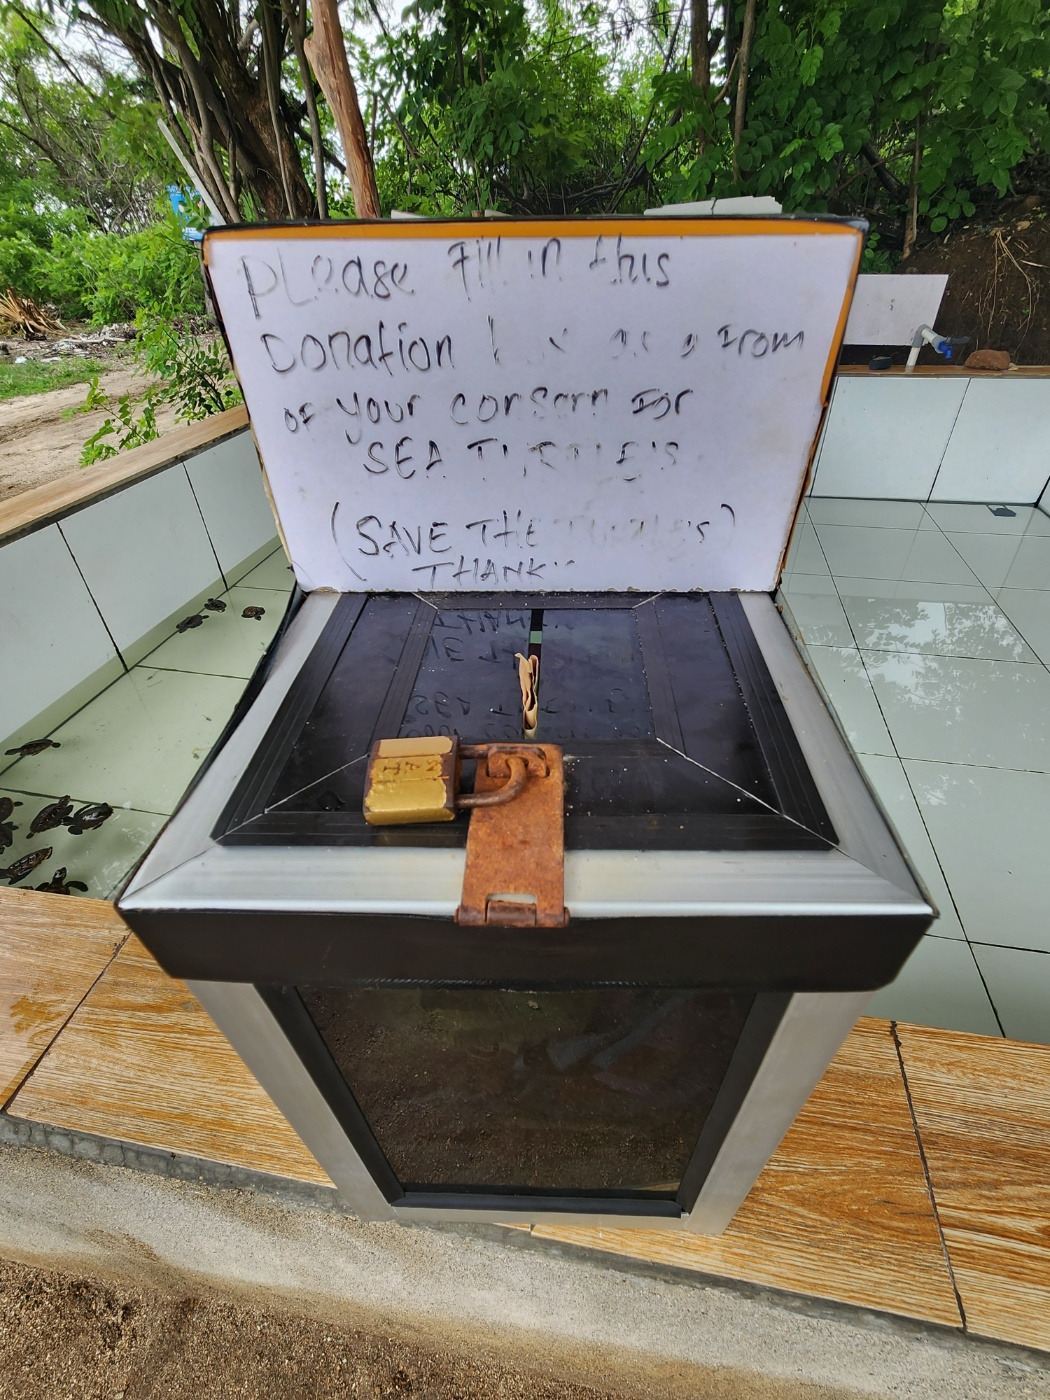 please Fill in this
Donation as a From
of your consarn For
SEA TURTLE'S
(SAVE THE TURTLE'S)
THANK